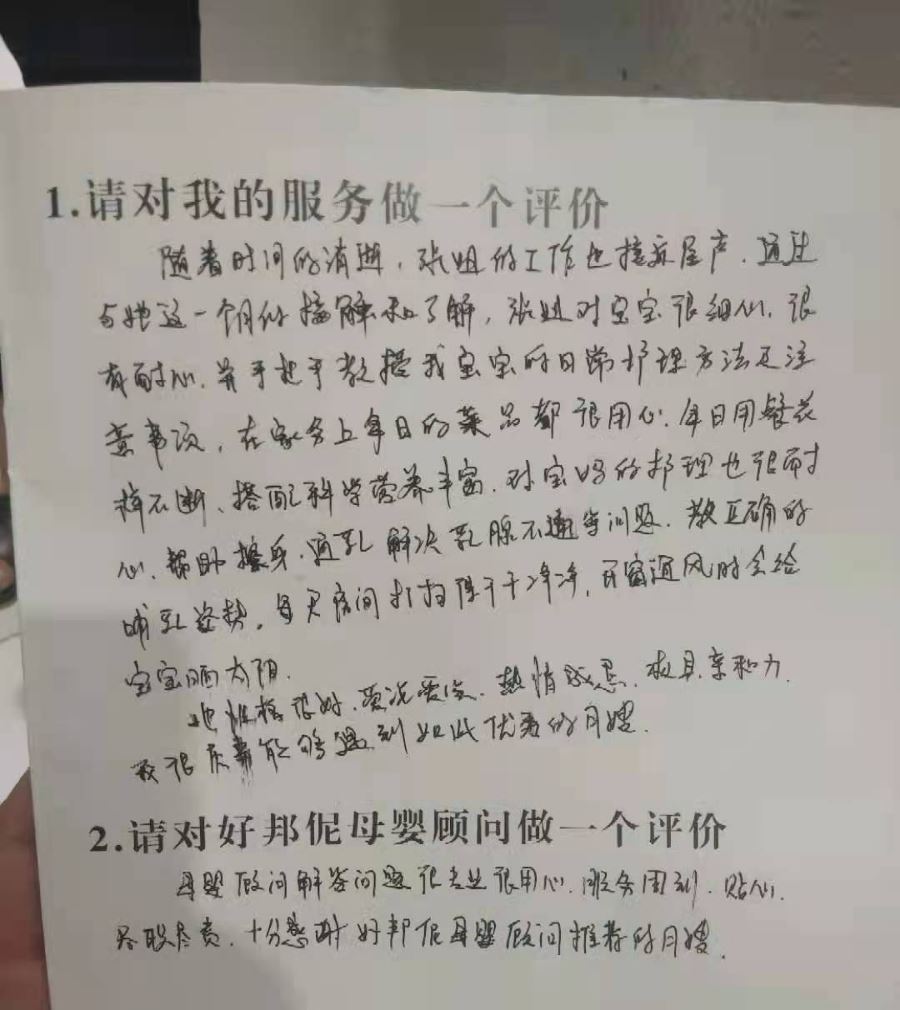 1.请对我的服务做一个评价
随着时间的消逝，张姐的工作也接近尾声，通过
与她这一个月的接触和了解，张姐对宝宝很细心，很
有耐心，并手把手教授我宝宝的日常护理方法及注
意事项，在家务上每日的菜品都很用心，每日用餐花
样不断，搭配科学营养丰富，对宝妈的护理也很耐
心，帮助擦身，通乳解决乳腺不通等问题，教正确的
哺乳姿势，每天房间打扫得干干净净，开窗通风时会给
宝宝晒太阳．
她性格很好，爱说爱笑，热情诚恳，极具亲和力．
我很庆幸能够遇到如此优秀的月嫂．
2.请对好邦伲母婴顾问做一个评价
母婴顾问解答问题很专业很用心，服务周到，贴心，
尽职尽责，十分感谢好邦伲母婴顾问推荐的月嫂．